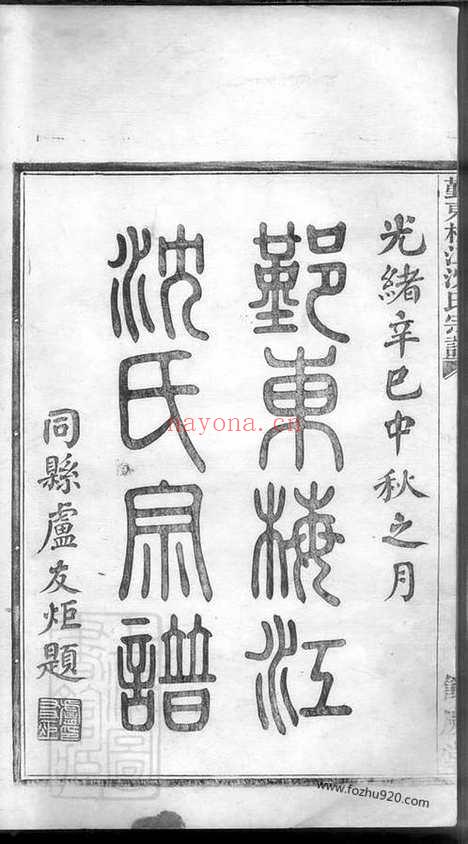 光緒辛巳中秋之月
鄞東梅江
沈氏宗譜
同縣盧友炬題
鄞東梅江沈氏宗譜
nayona.cn
www.fozhu920.com